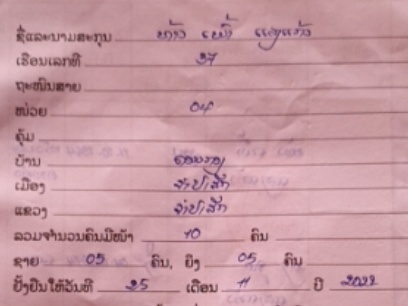 ຊື່ແລະນາມສະກຸນ ທ້າວ
ເຮືອນເລກທີ 27
ຖະໜົນສາຍ
ໜ່ວຍ 04
ຄຸ້ມ
ບ້ານ
ເມືອງ ຈຳປາສັກ
ແຂວງ ຈຳປາສັກ
ລວມຈຳນວນຄົນມີໜ້າ 10 ຄົນ
ຊາຍ 05 ຄົນ, ຍິງ 05 ຄົນ
ຢັ້ງຢືນໃຫ້ວັນທີ 25 ເດືອນ 11 ປີ 2022